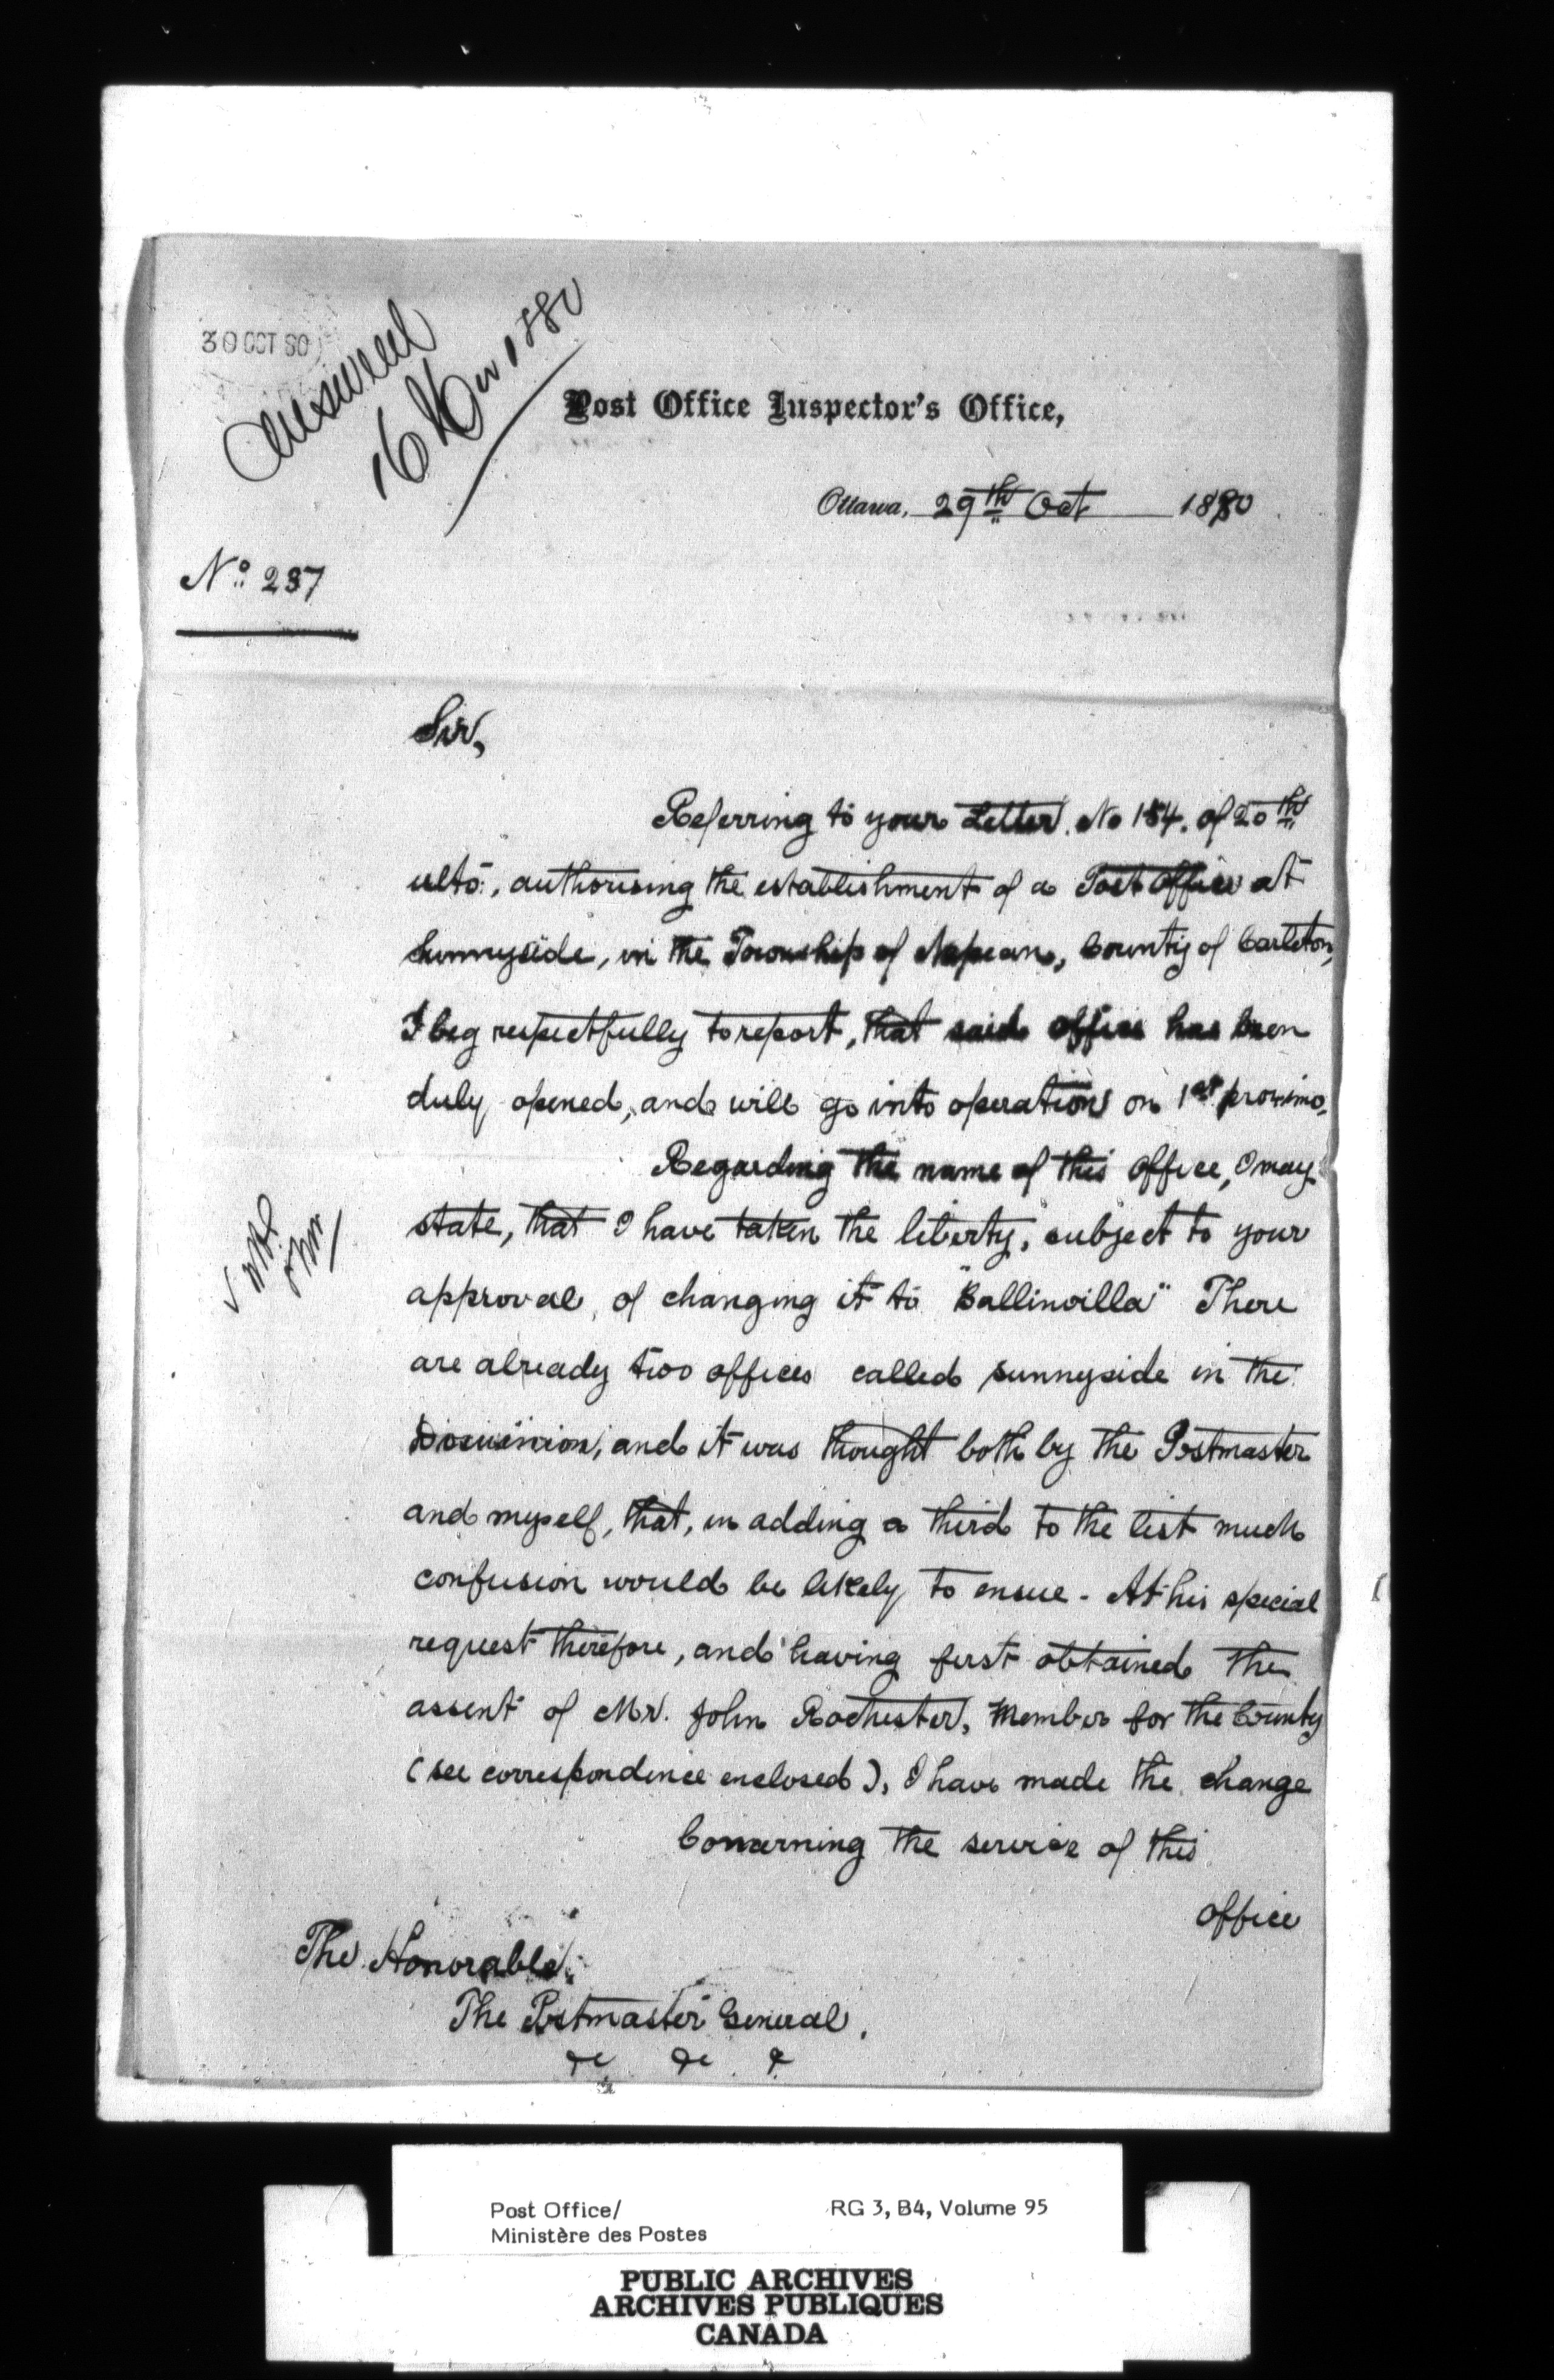 30 OCT 80
Answered
16 Nov 1880
Post Office Inspector's Office,
Ottawa, 29th Oct 1880
No. 237
Sir,
Referring to your Letter No 184. of 20th
ulto:, authorising the establishment of a Post Office at
Sunnyside, in the Township of Nepean, County of Carleton,
I beg respectfully to report, that said office has been
duly opened, and will go into operation on 1st proximo.
Regarding the name of this office, I may
state, that I have taken the liberty, subject to your
approval, of changing it to "Ballinvilla" There
are already two offices called Sunnyside in the
Dominion, and it was thought both by the Postmaster
and myself, that, in adding a third to the list much
confusion would be likely to ensue - At his special
request therefore, and having first obtained the
assent of Mr. John Rochester, Member for the County
(see correspondence enclosed), I have made the change
Concerning the service of this
office
The Honorable
The Postmaster General,
&c &c &
Post Office/
Ministère des Postes
RG 3, B4, Volume 95
PUBLIC ARCHIVES
ARCHIVES PUBLIQUES
CANADA